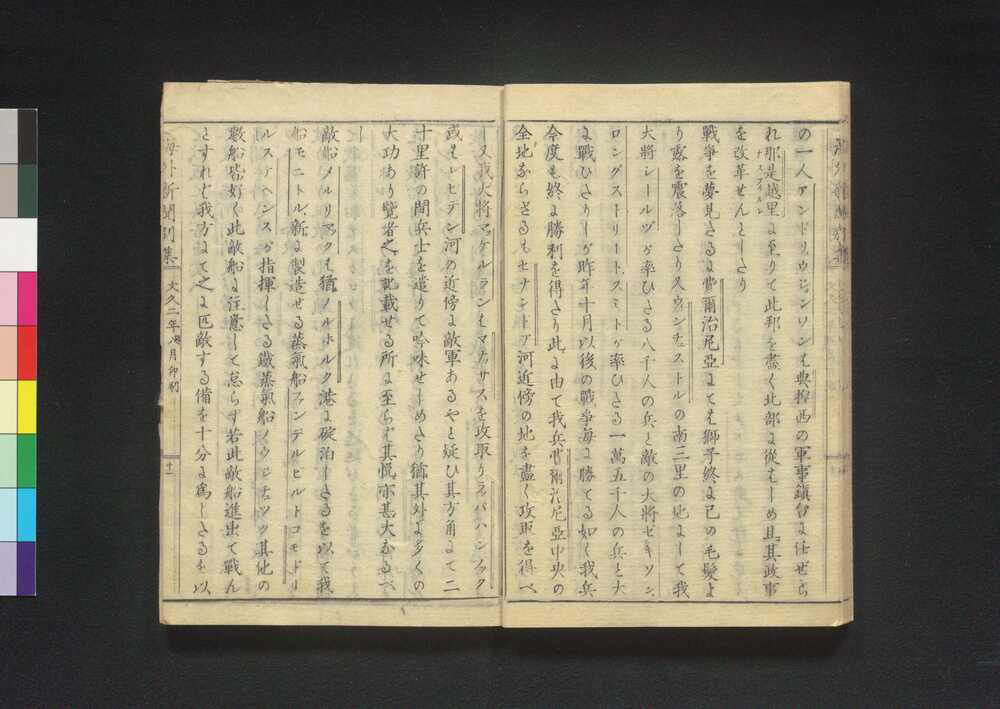 の一人アンドリウジョンソンは典捏西の軍事鎮台に任ぜら
れ那是越里に至りて此邦を盡く北部に從はしめ且其政事
ナスフイルレ
を改革せんとしたり
戰爭を夢見さるに費爾治尼亞にては獅子終に己の毛髮よ
り露を震落したりスウィンチェストルの南三里の地にして我
大將シールヅが率ひたる八千人の兵と敵の大將ゼキソン、
ロングストリート、スミトが率ひたる一萬五千人の兵と大
に戰ひたりしが昨年十月以後の戰爭毎に勝てる如く我兵
今度も終に勝利を得たり此に由て我兵費爾治尼亞中央の
全地ならざるもセナンドア河近傍の地を盡く攻取を得べ
し又我大將マケルランはマナサスを攻取りラパハンノック
或はレヒデン河の近傍に敵軍あるやと疑ひ其方角にて二
十里許の間兵士を遣りて吟味せしめたり猶其外に多くの
大功あり覽者之を記載せる所に至らば其悦亦甚大なるべ
し
敵船メルリマクは猶ノルホルク港に碇泊したるを以て我
船モニトル、新に製造せる蒸氣船ファンデルビルト、コモドリ
ルステヘンスが指揮したる鐵蒸氣船ノウエチック其他の
數船皆好く此敵船に注意して怠らず若此敵船進出て戰ん
とすれば我方にて之に匹敵する備を十分に爲したるを以
海外新聞別集
文久二年 八月印刻
十一